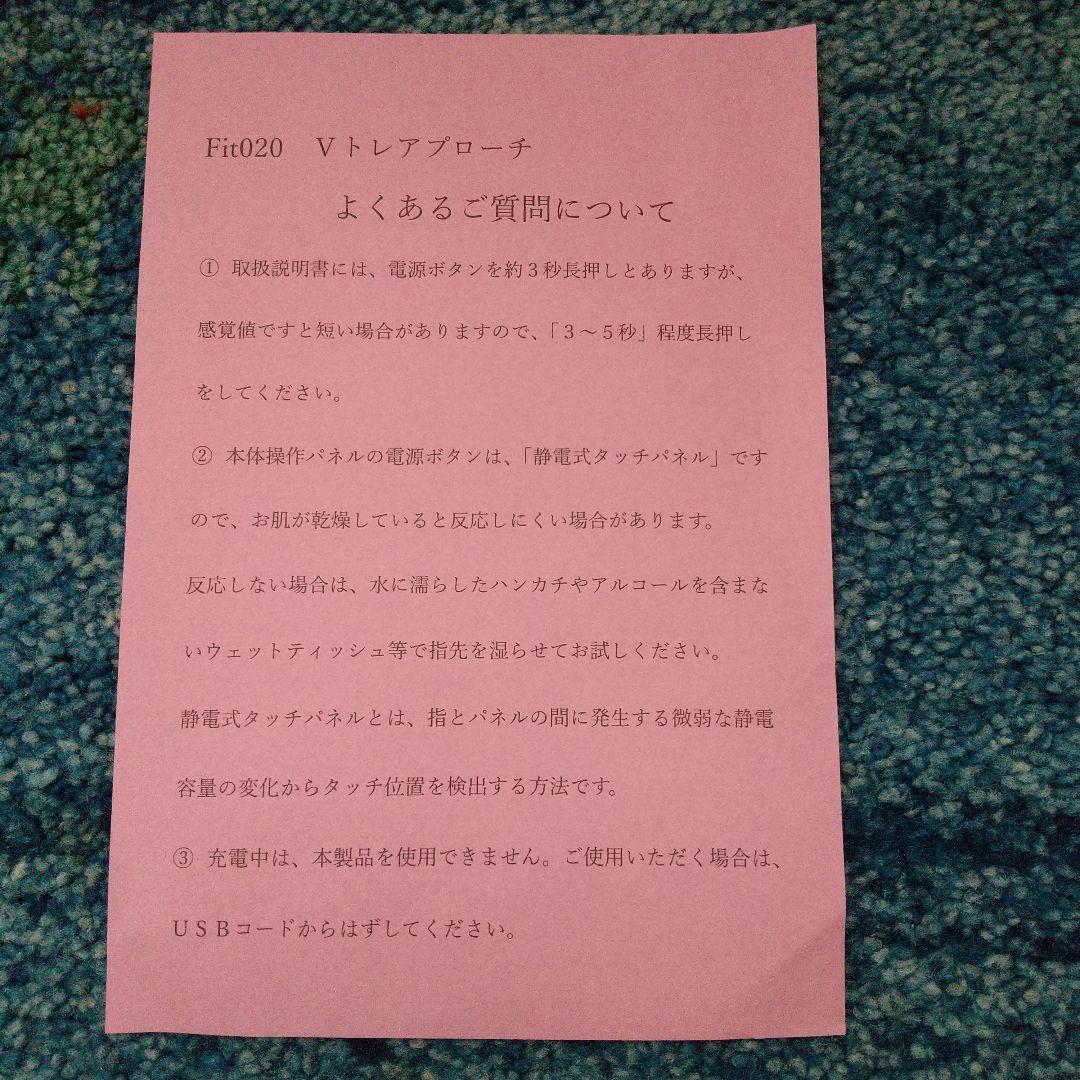 Fit020　Ｖトレアプローチ
よくあるご質問について
① 取扱説明書には、電源ボタンを約３秒長押しとありますが、
感覚値ですと短い場合がありますので、「３～５秒」程度長押し
をしてください。
② 本体操作パネルの電源ボタンは、「静電式タッチパネル」です
ので、お肌が乾燥していると反応しにくい場合があります。
反応しない場合は、水に濡らしたハンカチやアルコールを含まな
いウェットティッシュ等で指先を湿らせてお試しください。
静電式タッチパネルとは、指とパネルの間に発生する微弱な静電
容量の変化からタッチ位置を検出する方法です。
③ 充電中は、本製品を使用できません。ご使用いただく場合は、
ＵＳＢコードからはずしてください。